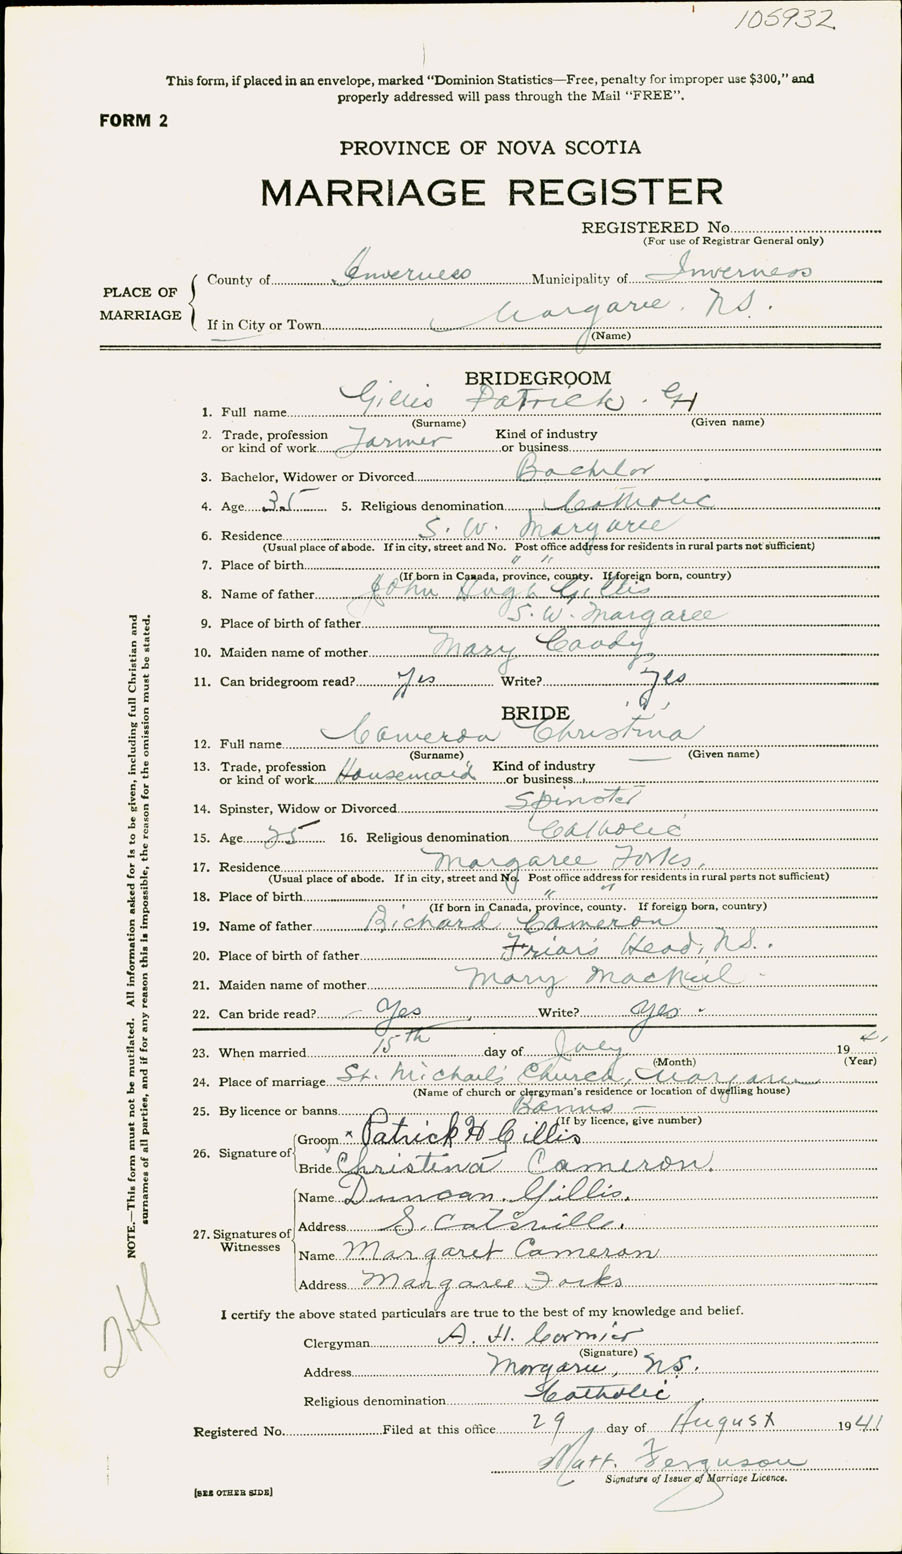 105932
This form, if placed in an envelope, marked "Dominion Statistics—Free, penalty for improper use $300," and
properly addressed will pass through the Mail "FREE".
FORM 2
PROVINCE OF NOVA SCOTIA
MARRIAGE REGISTER
REGISTERED No.
(For use of Registrar General only)
PLACE OF MARRIAGE
County of Inverness Municipality of Inverness
If in City or Town Margaree. N.S.
(Name)
BRIDEGROOM
1. Full name Gillis Patrick. H
(Surname) (Given name)
2. Trade, profession or kind of work Farmer Kind of industry or business
3. Bachelor, Widower or Divorced Bachelor
4. Age 35 5. Religious denomination Catholic
6. Residence S. W. Margaree
(Usual place of abode. If in city, street and No. Post office address for residents in rural parts not sufficient)
7. Place of birth " "
(If born in Canada, province, county. If foreign born, country)
8. Name of father John Hugh Gillis
9. Place of birth of father S. W. Margaree
10. Maiden name of mother Mary Coady
11. Can bridegroom read? Yes Write? Yes
BRIDE
12. Full name Cameron Christina
(Surname) (Given name)
13. Trade, profession or kind of work Housemaid Kind of industry or business
14. Spinster, Widow or Divorced Spinster
15. Age 25 16. Religious denomination Catholic
17. Residence Margaree Forks.
(Usual place of abode. If in city, street and No. Post office address for residents in rural parts not sufficient)
18. Place of birth " "
(If born in Canada, province, county. If foreign born, country)
19. Name of father Richard Cameron
20. Place of birth of father Friar's Head, N.S.
21. Maiden name of mother Mary MacNeil
22. Can bride read? Yes Write? Yes
23. When married 15th day of July 19 41
(Month) (Year)
24. Place of marriage St. Michael's Church, Margaree
(Name of church or clergyman's residence or location of dwelling house)
25. By licence or banns Banns
(If by licence, give number)
26. Signature of Groom x Patrick H Gillis
Bride Christina Cameron.
27. Signatures of Witnesses
Name Duncan. Gillis.
Address
Name Margaret Cameron
Address Margaree Forks
I certify the above stated particulars are true to the best of my knowledge and belief.
Clergyman A. H. Cormier
(Signature)
Address Margaree, N.S.
Religious denomination Catholic
Registered No. Filed at this office 29 day of August 1941
Matt. Ferguson
Signature of Issuer of Marriage Licence.
[SEE OTHER SIDE]
NOTE.—This form must not be mutilated. All information asked for is to be given, including full Christian and
surnames of all parties, and if for any reason this is impossible, the reason for the omission must be stated.